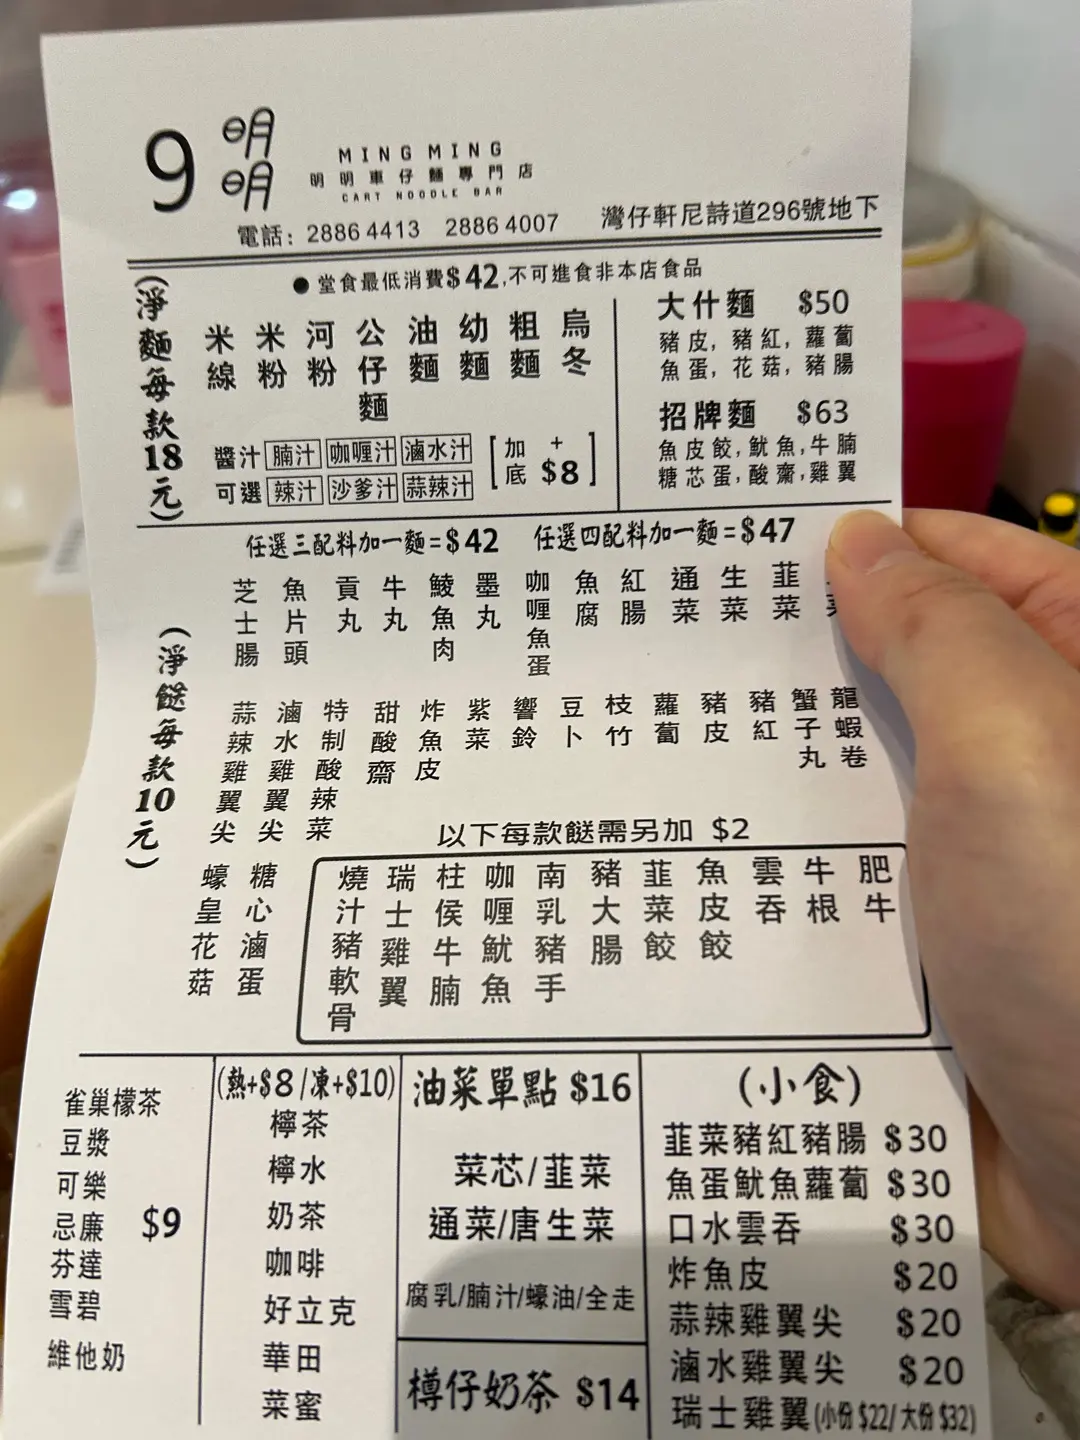 9 明明
MING MING
明明車仔麵專門店
CART NOODLE BAR
電話: 2886 4413 2886 4007 灣仔軒尼詩道296號地下
●堂食最低消費$42,不可進食非本店食品
(淨麵每款18元)
米線 米粉 河粉 公仔麵 油麵 幼麵 粗麵 烏冬
醬汁可選 腩汁 咖喱汁 滷水汁
辣汁 沙爹汁 蒜辣汁
[加底 +$8]
大什麵 $50
豬皮,豬紅,蘿蔔
魚蛋,花菇,豬腸
招牌麵 $63
魚皮餃,魷魚,牛腩
糖芯蛋,酸齋,雞翼
任選三配料加一麵=$42 任選四配料加一麵=$47
(淨餸每款10元)
芝士腸 魚片頭 貢丸 牛丸 鯪魚肉 墨丸 咖喱魚蛋 魚腐 紅腸 通菜 生菜 韮菜
蒜辣雞翼尖 滷水雞翼尖 特制酸辣菜 甜酸齋 炸魚皮 紫菜 響鈴 豆卜 枝竹 蘿蔔 豬皮 豬紅 蟹子丸 龍蝦卷
蠔皇花菇 糖心滷蛋
以下每款餸需另加 $2
燒汁豬軟骨 瑞士雞翼 柱侯牛腩 咖喱魷魚 南乳豬手 豬大腸 韮菜餃 魚皮餃 雲吞 牛根 肥牛
雀巢檬茶
豆漿
可樂
忌廉 $9
芬達
雪碧
維他奶
(熱+$8/凍+$10)
檸茶
檸水
奶茶
咖啡
好立克
華田
菜蜜
油菜單點 $16
菜芯/韮菜
通菜/唐生菜
腐乳/腩汁/蠔油/全走
樽仔奶茶 $14
(小食)
韮菜豬紅豬腸 $30
魚蛋魷魚蘿蔔 $30
口水雲吞 $30
炸魚皮 $20
蒜辣雞翼尖 $20
滷水雞翼尖 $20
瑞士雞翼(小份 $22/大份 $32)